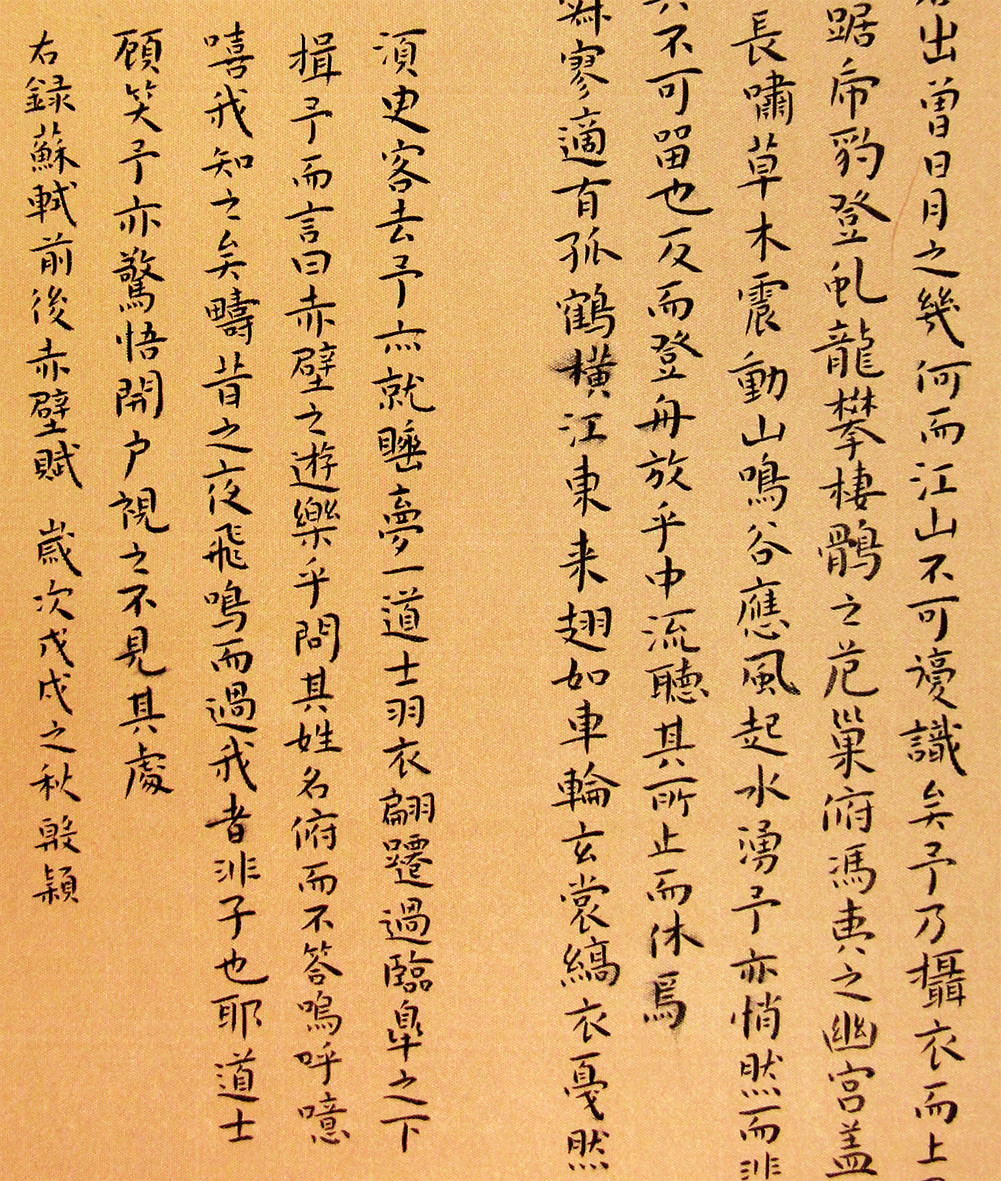 出曾日月之幾何而江山不可復識矣予乃攝衣而上
踞虎豹登虬龍攀棲鶻之危巢俯馮夷之幽宮盖
長嘯草木震動山鳴谷應風起水湧予亦悄然而
不可留也反而登舟放乎中流聽其所止而休焉
寥適有孤鶴橫江東来翅如車輪玄裳縞衣戛然
須臾客去予亦就睡夢一道士羽衣翩躚過臨皐之下
揖予而言曰赤壁之遊樂乎問其姓名俯而不答嗚呼噫
嘻我知之矣疇昔之夜飛鳴而過我者非子也耶道士
顧笑予亦驚悟開户視之不見其處
右録蘇軾前後赤壁賦 歲次戊戌之秋殷穎